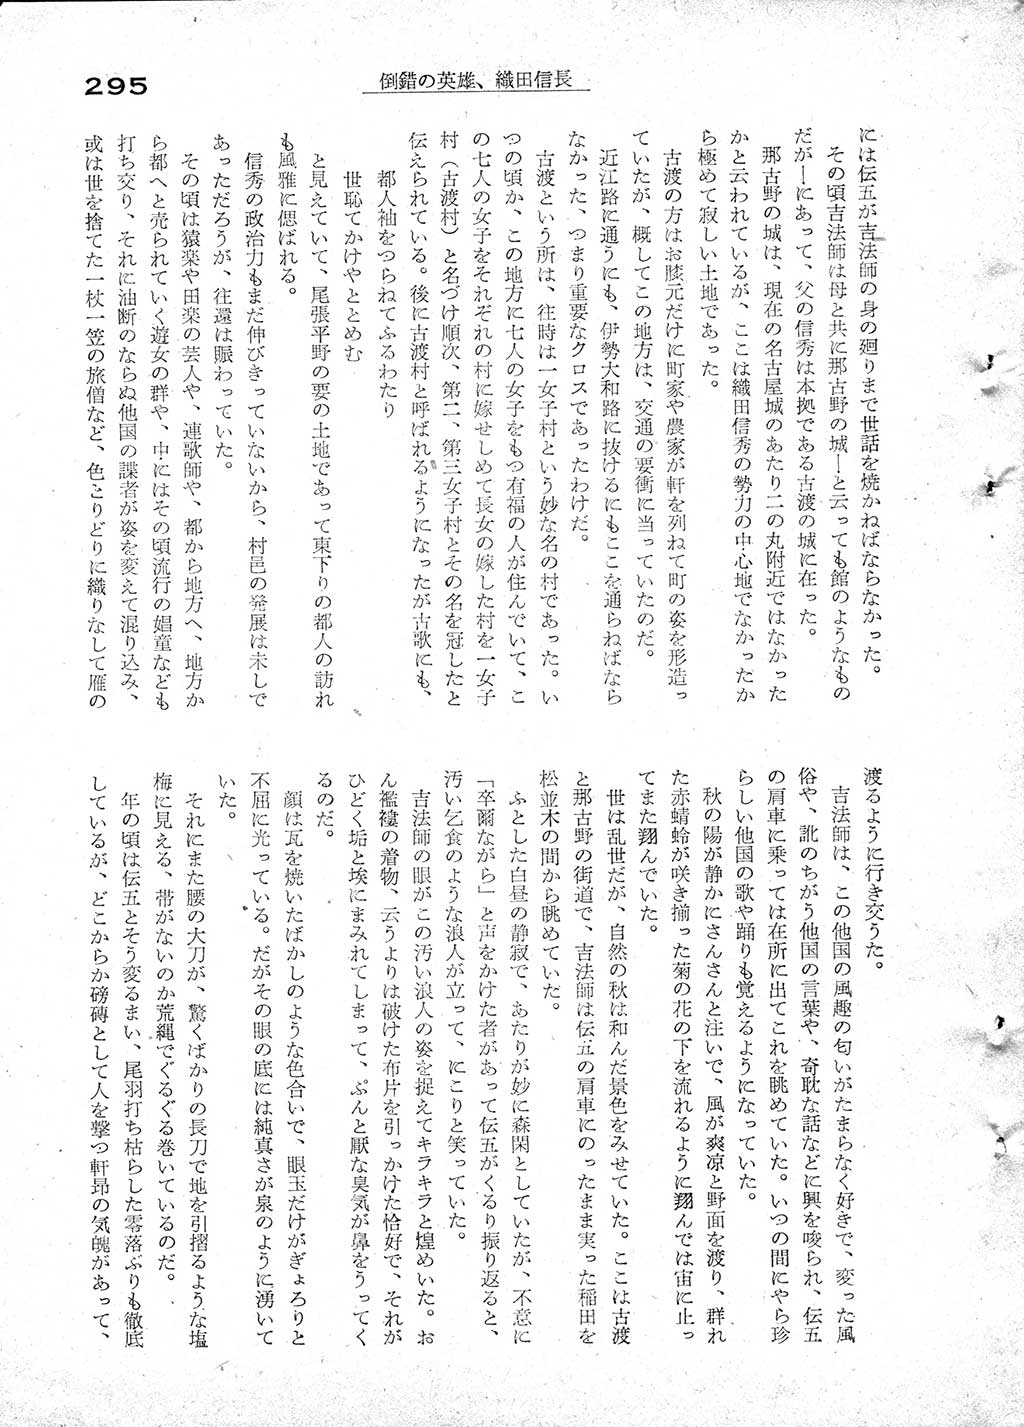 295
倒錯の英雄、織田信長
には伝五が吉法師の身の廻りまで世話を焼かねばならなかった。
その頃吉法師は母と共に那古野の城―と云っても館のようなもの
だが―にあって、父の信秀は本拠である古渡の城に在った。
那古野の城は、現在の名古屋城のあたり二の丸附近ではなかった
かと云われているが、ここは織田信秀の勢力の中心地でなかったか
ら極めて寂しい土地であった。
古渡の方はお膝元だけに町家や農家が軒を列ねて町の姿を形造っ
ていたが、概してこの地方は、交通の要衝に当っていたのだ。
近江路に通うにも、伊勢大和路に抜けるにもここを通らねばなら
なかった、つまり重要なクロスであったわけだ。
古渡という所は、往時は一女子村という妙な名の村であった。い
つの頃か、この地方に七人の女子をもつ有福の人が住んでいて、こ
の七人の女子をそれぞれの村に嫁せしめて長女の嫁した村を一女子
村（古渡村）と名づけ順次、第二、第三女子村とその名を冠したと
伝えられている。後に古渡村と呼ばれるようになったが古歌にも、
都人袖をつらねてふるわたり
世恥てかけやととめむ
と見えていて、尾張平野の要の土地であって東下りの都人の訪れ
も風雅に偲ばれる。
信秀の政治力もまだ伸びきっていないから、村邑の発展は未しで
あっただろうが、往還は賑わっていた。
その頃は猿楽や田楽の芸人や、連歌師や、都から地方へ、地方か
ら都へと売られていく遊女の群や、中にはその頃流行の娼童なども
打ち交り、それに油断のならぬ他国の諜者が姿を変えて混り込み、
或は世を捨てた一杖一笠の旅僧など、色とりどりに織りなして雁の
渡るように行き交うた。
吉法師は、この他国の風趣の匂いがたまらなく好きで、変った風
俗や、訛のちがう他国の言葉や、奇耽な話などに興を唆られ、伝五
の肩車に乗っては在所に出てこれを眺めていた。いつの間にやら珍
らしい他国の歌や踊りも覚えるようになっていた。
秋の陽が静かにさんさんと注いで、風が爽涼と野面を渡り、群れ
た赤蜻蛉が咲き揃った菊の花の下を流れるように翔んでは宙に止っ
てまた翔んでいた。
世は乱世だが、自然の秋は和んだ景色をみせていた。ここは古渡
と那古野の街道で、吉法師は伝五の肩車にのったまま実った稲田を
松並木の間から眺めていた。
ふとした白昼の静寂で、あたりが妙に森閑としていたが、不意に
「卒爾ながら」と声をかけた者があって伝五がくるり振り返ると、
汚い乞食のような浪人が立って、にこりと笑っていた。
吉法師の眼がこの汚い浪人の姿を捉えてキラキラと煌めいた。お
ん襤褸の着物、云うよりは破けた布片を引っかけた恰好で、それが
ひどく垢と埃にまみれてしまって、ぷんと厭な臭気が鼻をうってく
るのだ。
顔は瓦を焼いたばかしのような色合いで、眼玉だけがぎょろりと
不屈に光っている。だがその眼の底には純真さが泉のように湧いて
いた。
それにまた腰の大刀が、驚くばかりの長刀で地を引摺るような塩
梅に見える、帯がないのか荒縄でぐるぐる巻いているのだ。
年の頃は伝五とそう変るまい、尾羽打ち枯らした零落ぶりも徹底
しているが、どこからか磅礴として人を撃つ軒昂の気魄があって、